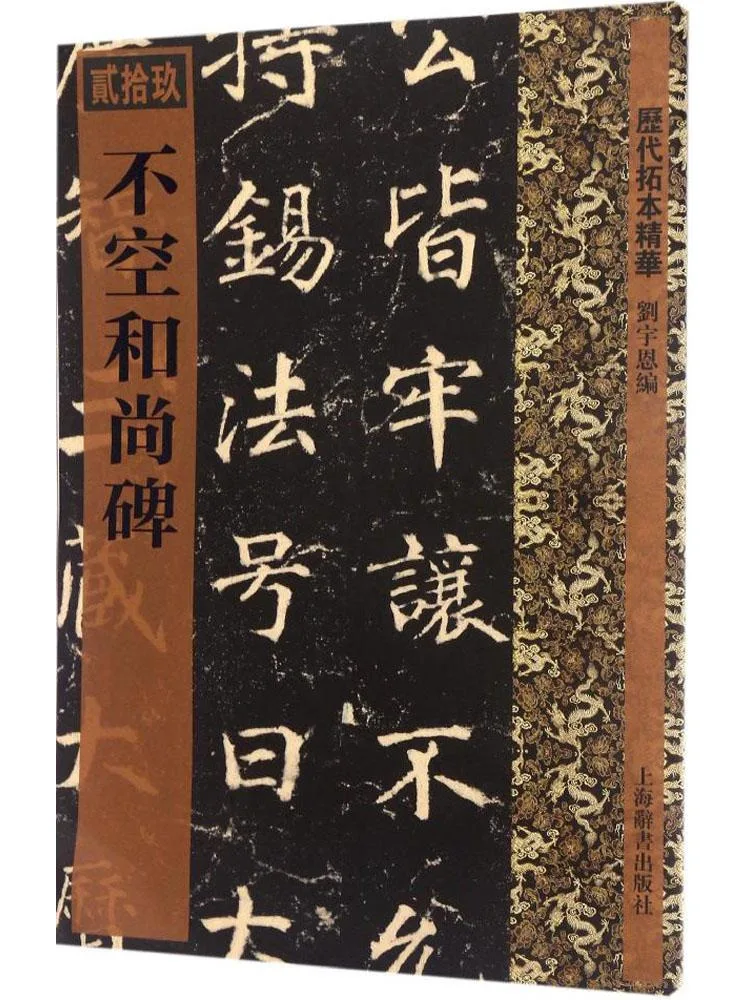 歷代拓本精華
劉宇恩編
上海辭書出版社
公皆牢讓不允
特錫法号曰大
智三藏大曆
貳拾玖
不空和尚碑